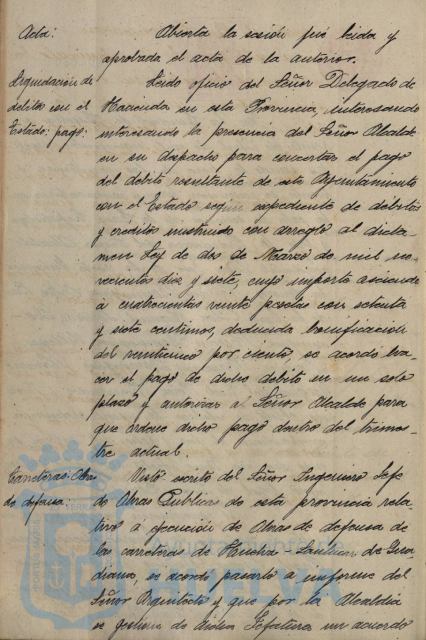 Acta:
Abierta la sesión fué leida y
aprobada el acta de la anterior.
Liquidación de
debitos con el
Estado: pago:
Leido oficio del Señor Delegado de
Hacienda en esta Provincia, interesando
interesando la presencia del Señor Alcalde
en su despacho para concertar el pago
del debito resultante de este Ayuntamiento
con el Estado segun expediente de debitos
y creditos instruido con arreglo al dicta-
men Ley de dos de Marzo de mil no-
vecientos diez y siete, cuyo importe asciende
a cuatrocientas veinte pesetas con setenta
y siete centimos, deducida bonificación
del veinticinco por ciento, se acordó ha-
cer el pago de dicho debito en un solo
plazo y autorizar al Señor Alcalde para
que ordene dicho pago dentro del trimes-
tre actual.
Carreteras: Obras
de defensa:
Visto escrito del Señor Ingeniero Jefe
de Obras Publicas de esta provincia rela-
tivo a ejecución de Obras de defensa de
las carreteras de Huelva - Sanlucar de Gua-
diana, se acordó pasarlo a informe del
Señor Arquitecto y que por la Alcaldia
se gestione de dicha Jefatura un acuerdo